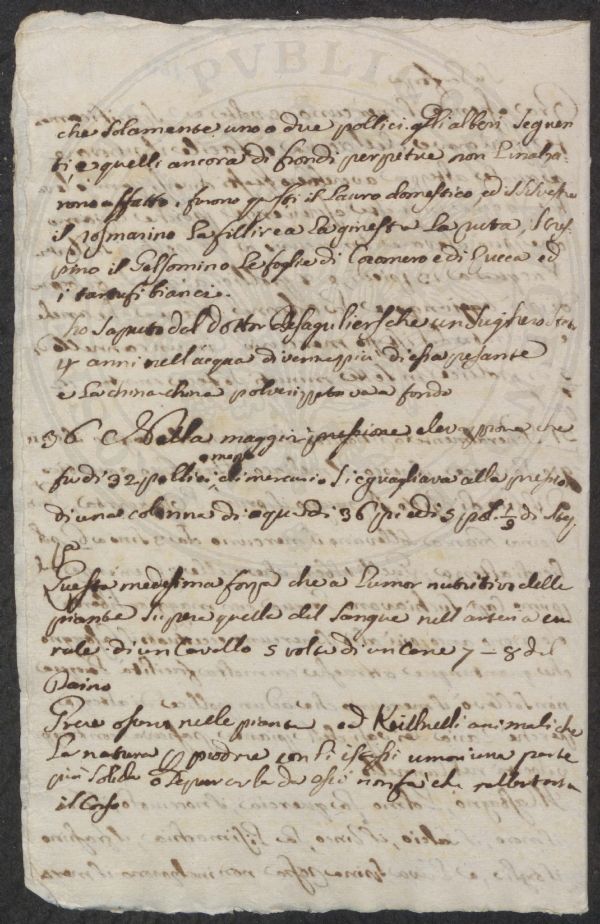 PVBLI
che solamente uno o due pollici. gli alberi seguen
ti e quelli ancora di frondi perpetue non l'inalza
rono affatto, furono questi il Lauro domestico, ed il silvestre
il rosmarino la fillirea la ginestra la ruta, il
pino il Gelsomino le foglie di e di Yucca ed
i tartufi bianci.
Ho saputo dal dottor Desaguliers che un sughero stato
4 anni nell'acqua divenne più di essa pesante
e la china china polverizzata va a fondo
36 Nella maggior pressione che
fu di 32 pollici e mezzo di mercurio si eguagliava alla
di una colonna di acqua di 36 piedi 5 pol. 1/9 di
Questa medesima forza che a l'umor nutritivo delle
piante supera quella del sangue nell'arteria cru
rale di un Cavallo 5 volte di un Cane 7 – 8 del
Daino
Grew osservò nelle piante ed Keill nelli animali che
la natura p produrre con li istessi umori una parte
più solida o separarla da essi non fa che
il corso